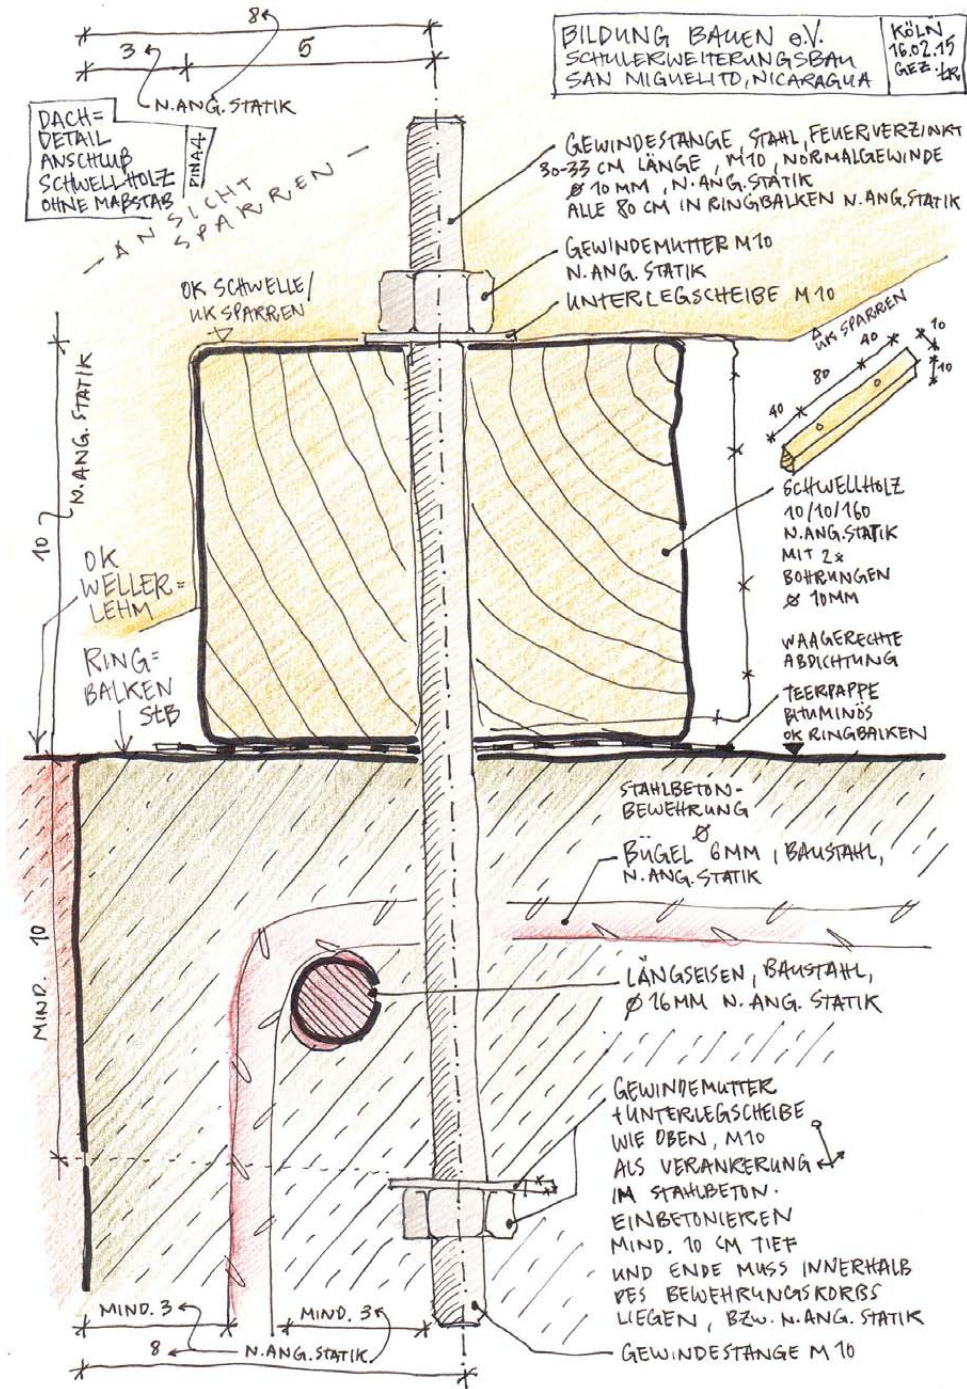 8
3
5
N.ANG.STATIK
BILDUNG BAUEN e.V.
SCHULERWEITERUNGSBAU
SAN MIGUELITO, NICARAGUA
KÖLN
16.02.15
GEZ.
DACH=
DETAIL
ANSCHLUß
SCHWELLHOLZ
OHNE MAßSTAB
DINA4
— ANSICHT
SPARREN —
GEWINDESTANGE, STAHL, FEUERVERZINKT
30-33 CM LÄNGE, M10, NORMALGEWINDE
Ø 10 MM, N.ANG.STATIK
ALLE 80 CM IN RINGBALKEN N.ANG.STATIK
GEWINDEMUTTER M10
N.ANG.STATIK
UNTERLEGSCHEIBE M10
OK SCHWELLE/
UK SPARREN
UK SPARREN
40
80
40
10
10
10
N.ANG.STATIK
SCHWELLHOLZ
10/10/160
N.ANG.STATIK
MIT 2x
BOHRUNGEN
Ø 10MM
OK
WELLER=
LEHM
RING=
BALKEN
StB
WAAGERECHTE
ABDICHTUNG
TEERPAPPE
BITUMINÖS
OK RINGBALKEN
STAHLBETON-
BEWEHRUNG
Ø
BÜGEL 6MM, BAUSTAHL,
N.ANG.STATIK
MIND. 10
LÄNGSEISEN, BAUSTAHL,
Ø 16MM N.ANG.STATIK
GEWINDEMUTTER
+UNTERLEGSCHEIBE
WIE OBEN, M10
ALS VERANKERUNG
IM STAHLBETON.
EINBETONIEREN
MIND. 10 CM TIEF
UND ENDE MUSS INNERHALB
DES BEWEHRUNGSKORBS
LIEGEN, BZW. N.ANG.STATIK
GEWINDESTANGE M10
MIND. 3
MIND. 3
8
N.ANG.STATIK